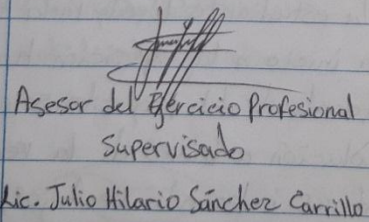 Asesor del Ejercicio Profesional
Supervisado
Lic. Julio Hilario Sánchez Carrillo